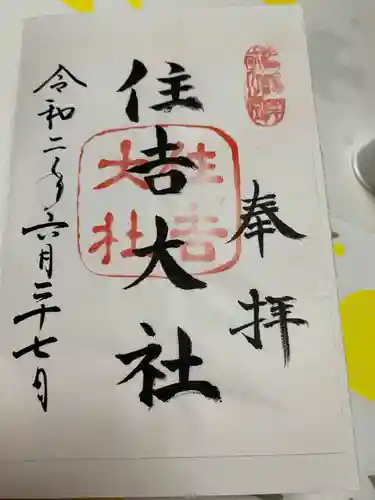 奉拝
住吉大社
住吉
大社
令和二年六月二十七日